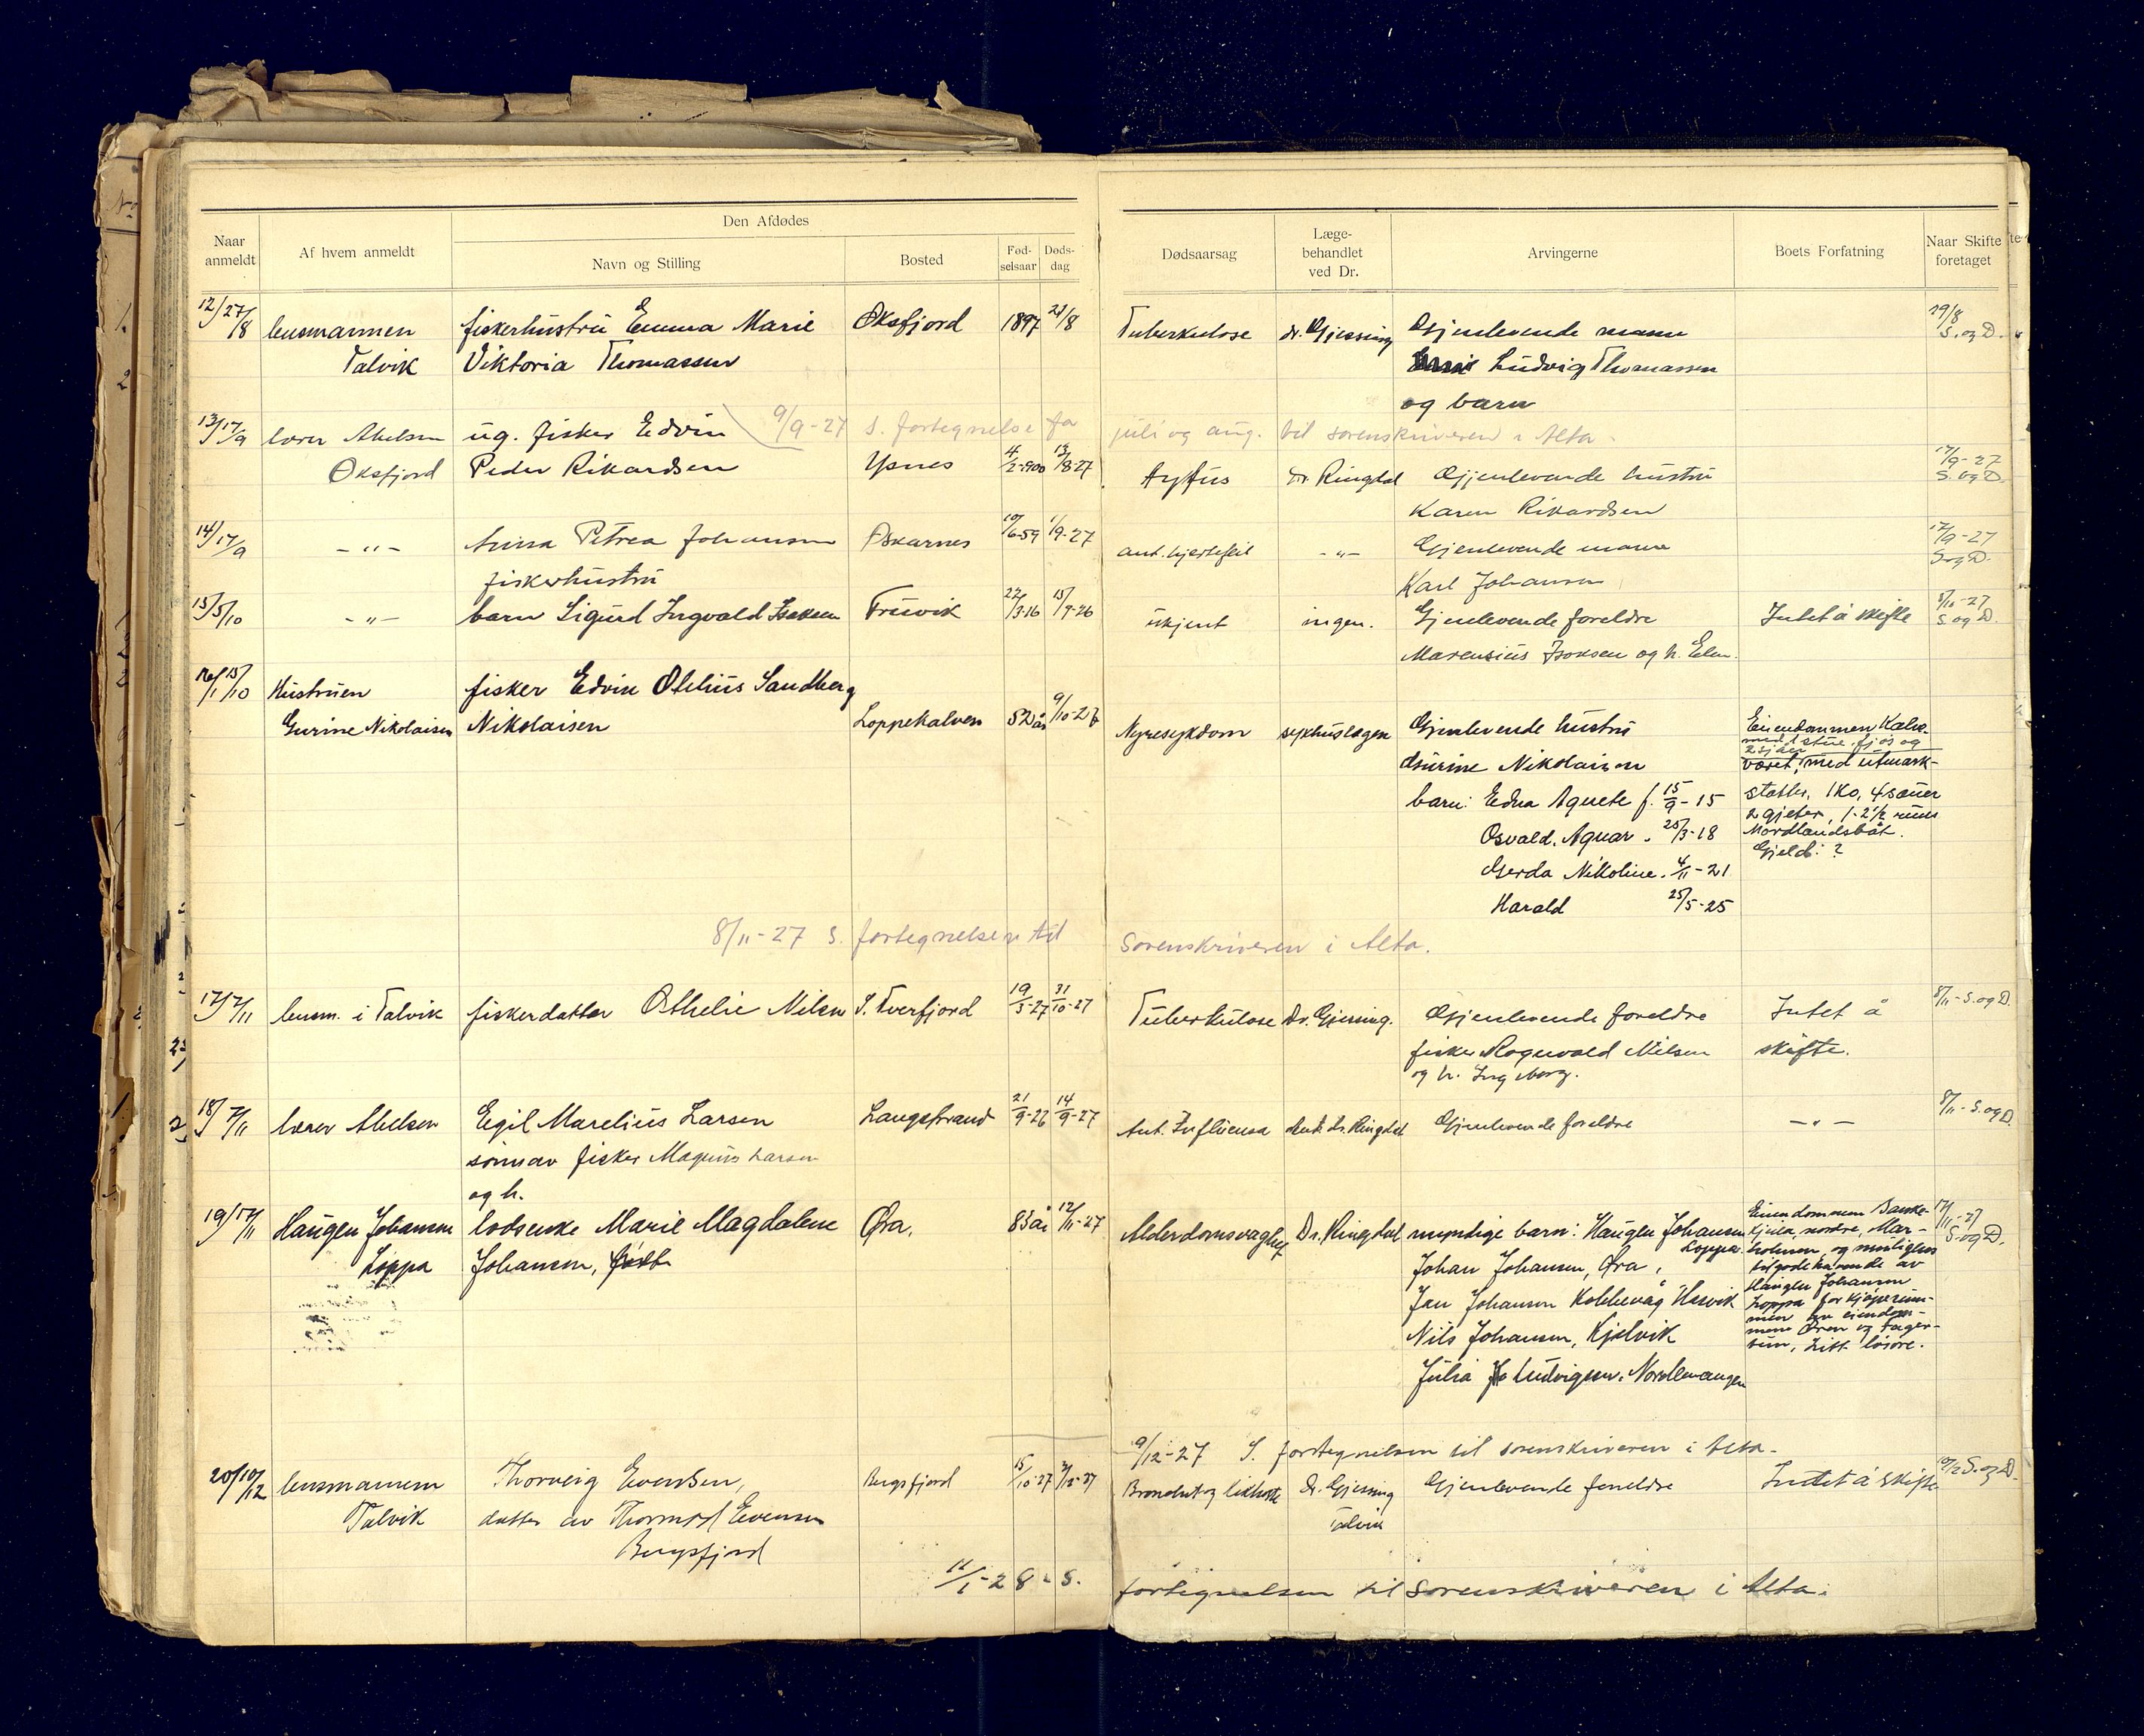 Den Afdødes
Naar anmeldt
Af hvem anmeldt
Navn og Stilling
Bosted
Fød-selsaar
Døds-dag
Dødsaarsag
Læge-behandlet ved Dr.
Arvingerne
Boets Forfatning
Naar Skifte foretaget
12/27/8 lensmannen fiskerhustru Emma Marie Øksfjord 1897 21/8 Tuberkulose dr. Gjessing Gjenlevende mann 29/8
Talvik Viktoria Thomassen Ludvig Thomassen S. og D.
og barn
9/9-27 S. fortegnelse for juli og aug. til sorenskriveren i Alta.
13/17/9 lærer Abelsen ug. fisker Edvin
Øksfjord Peder Rikardsen Ysnes 4/2-900 13/8-27 dr. Ringdal Gjenlevende hustru 17/9-27
Karen Rikardsen S. og D.
14/17/9 -"- Anna Petrea Johansen Oskarnes 10/6-59 1/9-27 ant. hjertefeil -"- Gjenlevende mann 17/9-27
fiskerhustru Karl Johansen S. og D.
15/5/10 -"- barn Sigurd Ingvald Isaksen Truvik 22/3-16 15/9-26 ukjent ingen. Gjenlevende foreldre Intet å skifte 5/10-27
Marensius Isaksen og h. Elen. S og D.
16/15/10 Hustruen fisker Edvin Othlius Sandberg
Gurine Nikolaisen Nikolaisen Loppekalven 52 år 9/10-27 Nyresykdom sykhuslægen Gjenlevende hustru Eiendommen Kalve-
med 1 stue, fjøs og
2 sjåer
Gurine Nikolaisen været, med utmark-
barn: Edna Agnete f. 15/9-15 statter, 1 ko, 4 sauer
2 gjeter, 1-2½ rums
Osvald. Agnar. 25/3-18 Nordlandsbåt.
Gjeld: ?
Gerda Nikoline. 4/11-21
Harald 25/5-25
8/11-27 S. fortegnelsen til Sorenskriveren i Alta.
17/7/11 lensm. i Talvik fiskerdatter Othelie Nilsen S. Tverfjord 19/3-27 31/10-27 Tuberkulose Dr. Gjessing. Gjenlevende foreldre Intet å 8/11-S. og D.
fisker Rognvald Nilsen skifte.
og h. Ingeborg.
18/7/11 lærer Abelsen Egil Marelius Larsen Langstrand 21/9-26 14/9-27 Ant. Influensa dr. Ringdal Gjenlevende foreldre -"- 8/11-S. og D.
sønn av fisker Magnus Larsen
og h.
19/17/11 Haugen Johansen lodsenke Marie Magdalene Øra. 83 år 12/11-27 Alderdomsvaghet Dr. Ringdal myndige barn: Haugen Johansen 17/11-27
Loppa Johansen, født Loppa. S. og D.
Johan Johansen, Øra,
Jan Johansen Kobbevåg Hasvik
Nils Johansen, Kjelvik
Julia Ludvigsen. Nordlevangen
Eiendommen
nordre, Mar-
holmen, og muligens
tilgodehavende av
Haugen Johansen
Loppa for kjøpesum-
men av eiendom-
mene Øren og Fager-
Litt løsøre.
9/12-27 S. fortegnelsen til sorenskriveren i Alta.
20/10/12 lensmannen Thorveig Evensen, Bergsfjord 15/10-27 2/12-27 Bronchit og kikhoste Dr. Gjessing Gjenlevende foreldre Intet å skifte 10/12 S. og D.
Talvik datter av Thormod Evensen Talvik
Bergsfjord
11/1-28 - S. fortegnelsen til Sorenskriveren i Alta.